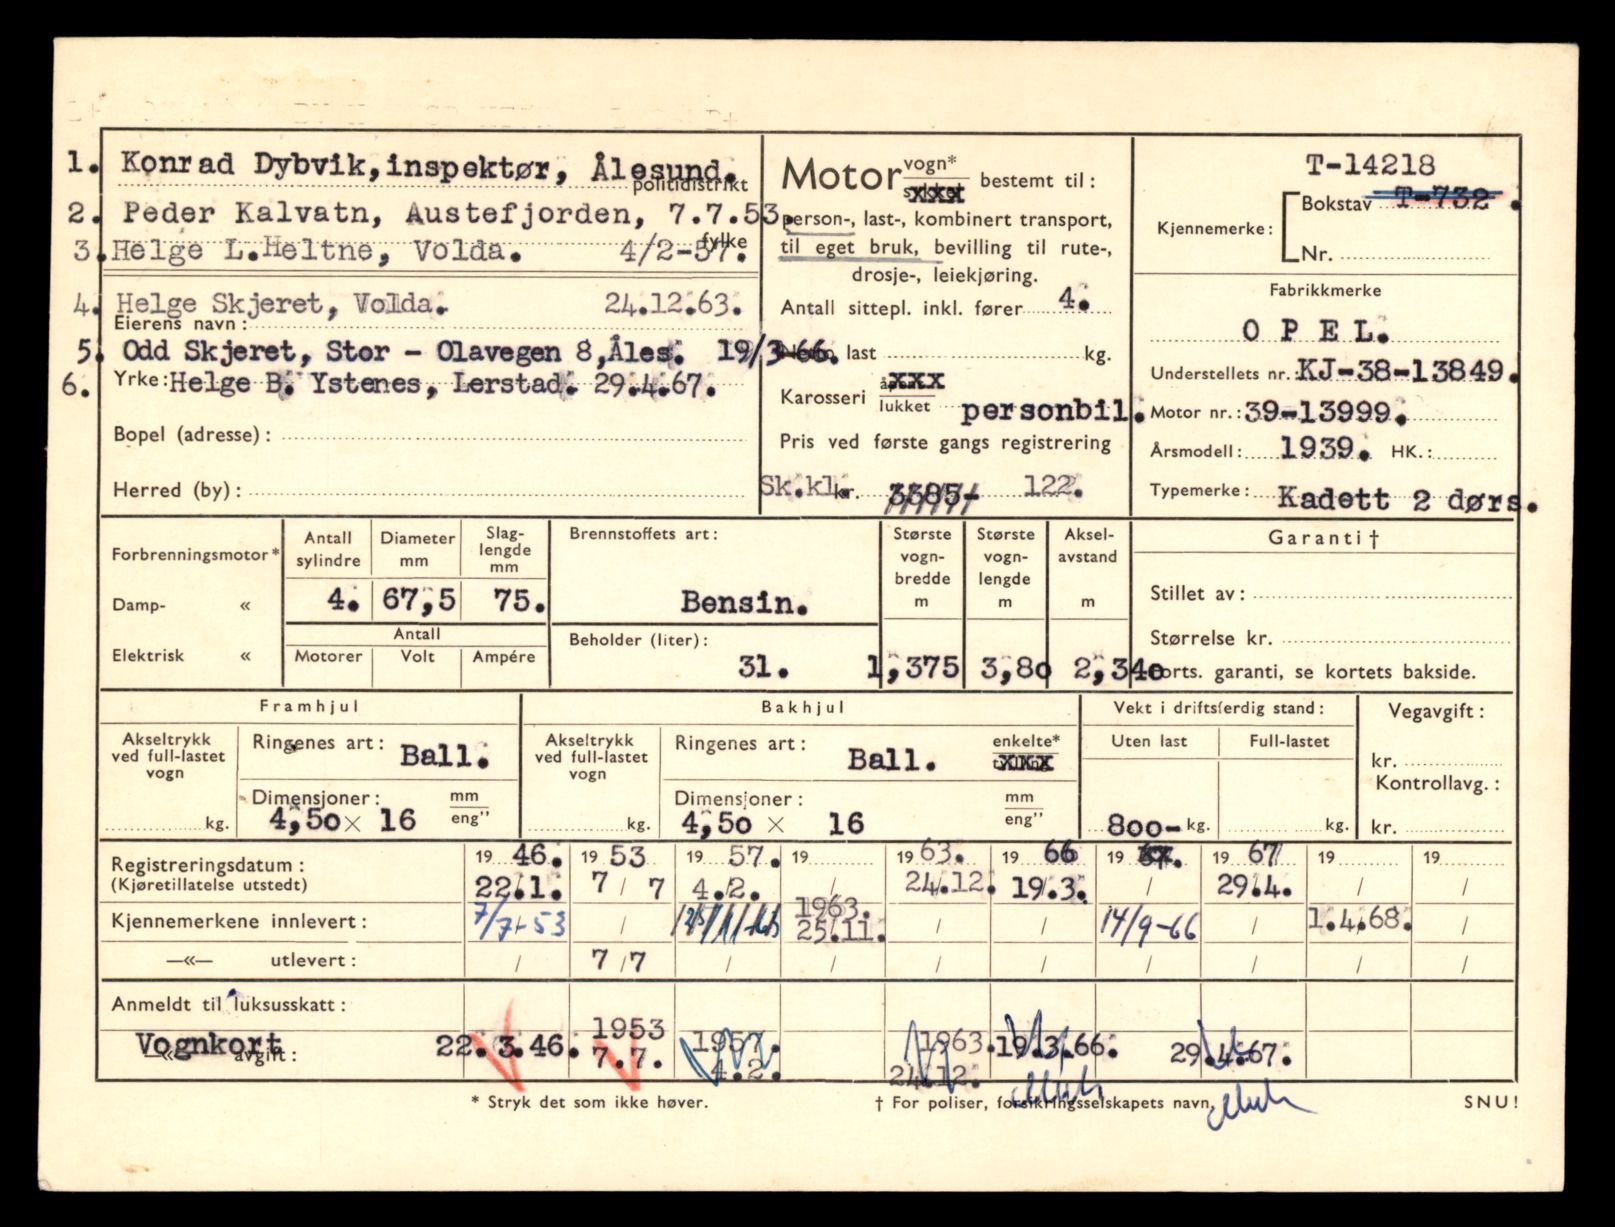 1. Konrad Dybvik, inspektør, Ålesund.
politidistrikt
2. Peder Kalvatn, Austefjorden, 7.7.53.
fylke
3. Helge L. Heltne, Volda. 4/2-57.
4. Helge Skjeret, Volda. 24.12.63.
Eierens navn:
5. Odd Skjeret, Stor - Olavegen 8, Åles. 19/3-66.
6. Yrke: Helge B. Ystenes, Lerstad. 29.4.67.
Bopel (adresse):
Herred (by):
Motor vogn* bestemt til:
xxx
person-, last-, kombinert transport,
til eget bruk, bevilling til rute-,
drosje-, leiekjøring.
Antall sittepl. inkl. fører 4.
last kg.
Karosseri xxx
lukket personbil.
Pris ved første gangs registrering
Sk.kl. kr. 3385- 122.
T-14218
Kjennemerke: Bokstav T-732.
Nr.
Fabrikkmerke
OPEL.
Understellets nr. KJ-38-13849.
Motor nr.: 39-13999.
Årsmodell: 1939. HK.:
Typemerke: Kadett 2 dørs.
Forbrenningsmotor* Antall sylindre Diameter mm Slag-lengde mm
Damp- « 4. 67,5 75.
Antall
Elektrisk « Motorer Volt Ampére
Brennstoffets art:
Bensin.
Beholder (liter):
31.
Største vogn-bredde m Største vogn-lengde m Aksel-avstand m
1,375 3,80 2,340
Garanti †
Stillet av:
Størrelse kr.
orts. garanti, se kortets bakside.
Framhjul
Akseltrykk ved full-lastet vogn
kg.
Ringenes art: Ball.
Dimensjoner: mm eng"
4,50 × 16
Bakhjul
Akseltrykk ved full-lastet vogn
kg.
Ringenes art: Ball. enkelte*
xxx
Dimensjoner: mm eng"
4,50 × 16
Vekt i driftsferdig stand:
Uten last Full-lastet
800- kg. kg.
Vegavgift:
kr.
Kontrollavg.:
kr.
Registreringsdatum: 19 46. 19 53 19 57. 19 19 63. 19 66 19 19 67 19 19
(Kjøretillatelse utstedt) 22.1. 7/7 4.2. / 24.12. 19.3. / 29.4. / /
Kjennemerkene innlevert: 7/7-53 / 25/11-63 1963. 25.11. / / 14/9-66 / 1.4.68. /
—«— utlevert: / 7/7 / / / / / / / /
Anmeldt til luksusskatt:
Vognkort 22.3.46. 1953 7.7. 1957. 4.2. 1963. 24.12. 19.3.66. 29.4.67.
—«— avgift:
* Stryk det som ikke høver. † For poliser, forsikringsselskapets navn, SNU!